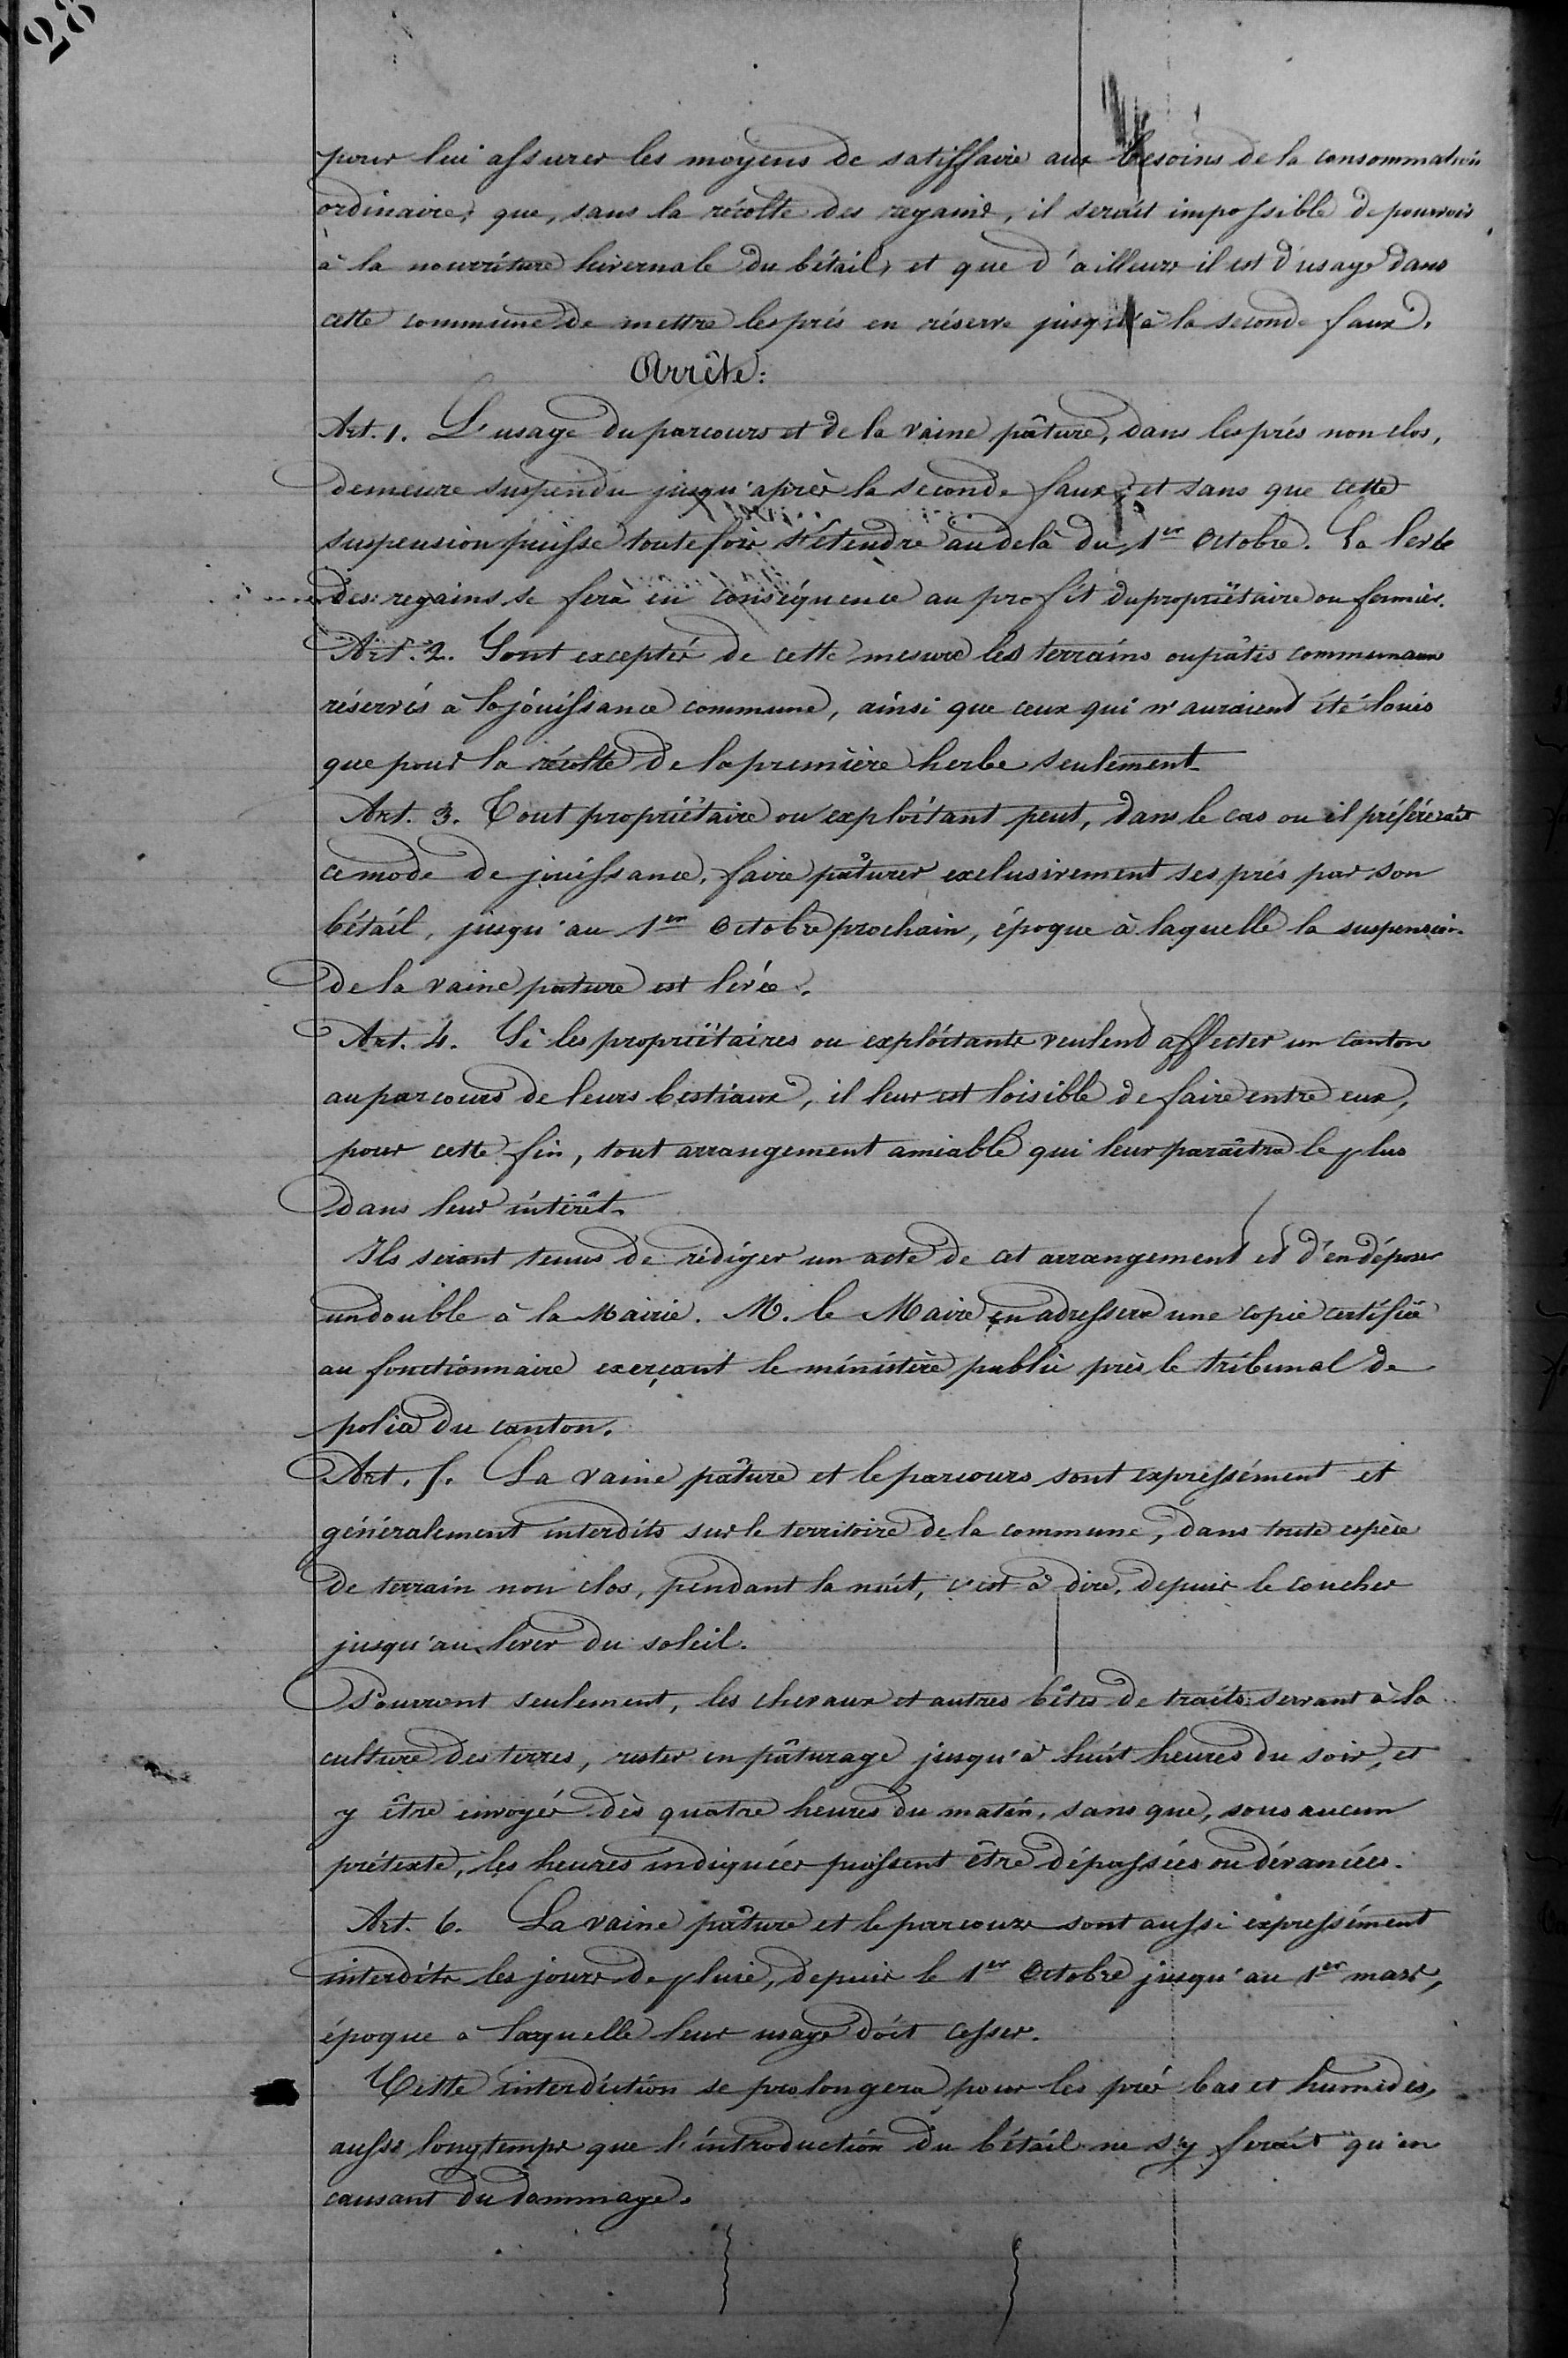 28
pour lui assurer les moyens de satisfaire aux besoins de la consommation
ordinaire; que, sans la récolte des regains, il serait impossible de pourvoir
à la nourriture hivernale du bétail, et que d'ailleurs il est d'usage dans
cette commune de mettre les prés en réserve jusqu'à la seconde faux.
Arrête:
Art. 1. L'usage du parcours et de la vaine pâture, dans les prés non clos,
demeure suspendu jusqu'après la seconde faux, et sans que cette
suspension puisse toutefois s'étendre au delà du 1er Octobre. La
des regains se fera en conséquence au profit du propriétaire ou fermier.
Art. 2. Sont exceptés de cette mesure les terrains ou pâtis communaux
réservés à la jouissance commune, ainsi que ceux qui n'auraient été loués
que pour la récolte de la première herbe seulement.
Art. 3. Tout propriétaire ou exploitant peut, dans le cas ou il préférerait
ce mode de jouissance, faire pâturer exclusivement ses prés par son
bétail, jusqu'au 1er Octobre prochain, époque à laquelle la suspension
de la vaine pature est levée.
Art. 4. Si les propriétaires ou exploitants veulent affecter un canton
au parcours de leurs bestiaux, il leur est loisible de faire entre eux,
pour cette fin, tout arrangement amiable qui leur paraîtra le plus
dans leur intérêt.
Ils seront tenus de rédiger un acte de cet arrangement et d'en déposer
un double à la Mairie. M. le Maire en adressera une copie certifiée
au fonctionnaire exerçant le ministère public près le tribunal de
police du canton.
Art. 5. La vaine pâture et le parcours sont expressément et
généralement interdits sur le territoire de la commune, dans toute espèce
de terrain non clos, pendant la nuit, c'est à dire, depuis le coucher
jusqu'au lever du soleil.
Pourront seulement, les chevaux et autres bêtes de traits servant à la
culture des terres, rester en pâturage jusqu'à huit heures du soir, et
y être envoyés dès quatre heures du matin, sans que, sous aucun
prétexte, les heures indiquées puissent être dépassées ou dévancées.
Art. 6. La vaine pâture et le parcours sont aussi expressément
interdits les jours de pluie, depuis le 1er Octobre jusqu'au 1er mars,
époque à laquelle leur usage doit cesser.
Cette interdiction se prolongera pour les prés bas et humides,
aussi longtemps que l'introduction du bétail ne s'y ferait qu'en
causant du dommage.